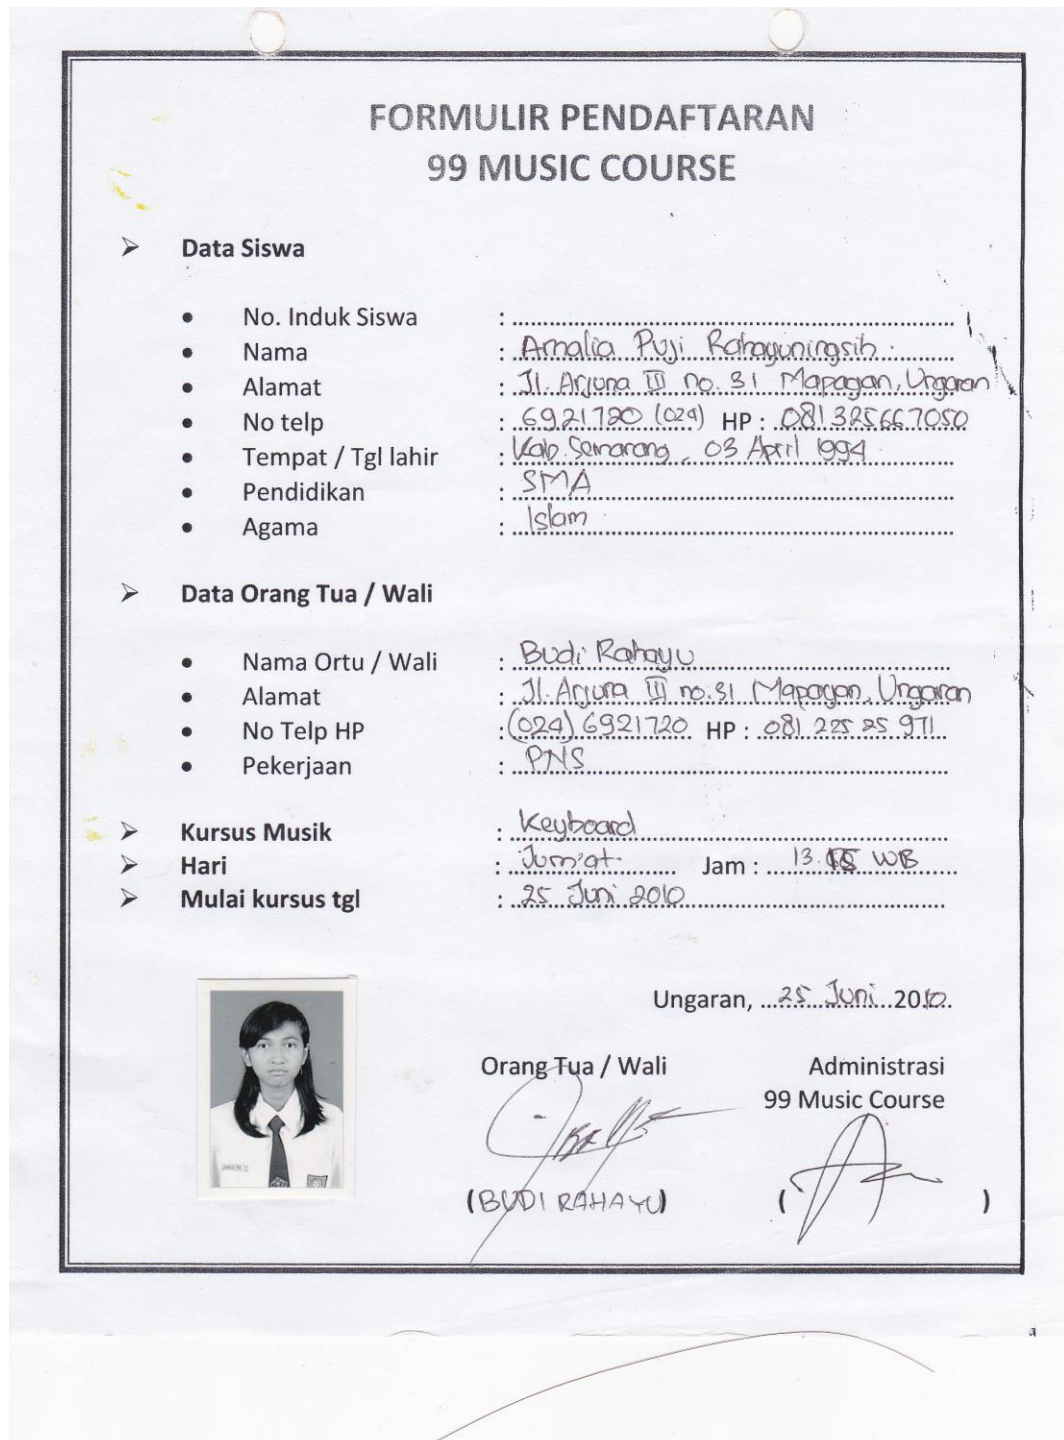 FORMULIR PENDAFTARAN
99 MUSIC COURSE
➢ Data Siswa
• No. Induk Siswa :
• Nama : Amalia Puji Rahayuningsih.
• Alamat : Jl. Arjuna III no. 31 Mapagan, Ungaran
• No telp : 6921720 (024) HP : 081325667050
• Tempat / Tgl lahir : Kab. Semarang, 03 April 1994.
• Pendidikan : SMA
• Agama : Islam.
➢ Data Orang Tua / Wali
• Nama Ortu / Wali : Budi Rahayu
• Alamat : Jl. Arjuna III no. 31 Mapagan, Ungaran
• No Telp HP : (024) 6921720 HP : 081 225 25 971
• Pekerjaan : PNS
➢ Kursus Musik : Keyboard
➢ Hari : Jum'at. Jam : 13. WIB
➢ Mulai kursus tgl : 25 Juni 2010
Ungaran, 25 Juni 2010.
Orang Tua / Wali Administrasi
99 Music Course
(BUDI RAHAYU) ( )